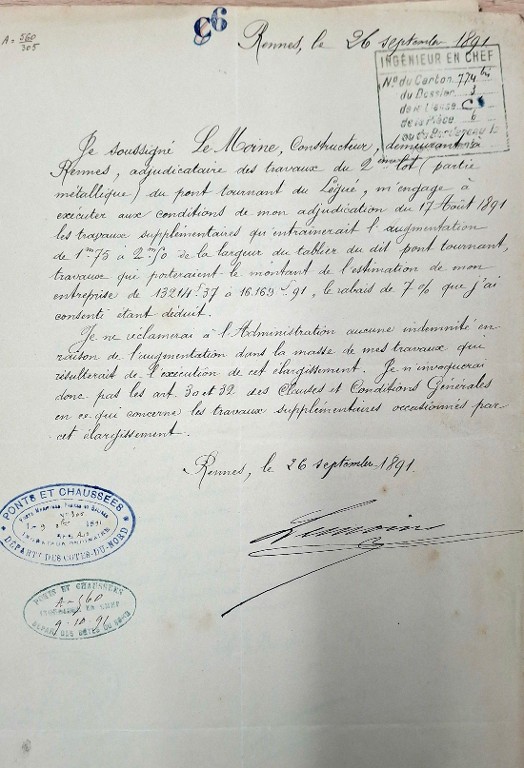 A = 560
305
C 6
Rennes, le 26 septembre 1891
INGÉNIEUR EN CHEF
No du Carton 774 bis
du Dossier 3
de la Liasse C
de la Pièce 6
Je soussigné Le Moine, Constructeur, demeurant à
Rennes, adjudicataire des travaux du 2ème lot (partie
métallique) du pont tournant du Légué, m'engage à
exécuter aux conditions de mon adjudication du 17 Août 1891
les travaux supplémentaires qu'entrainerait l'augmentation
de 1m75 à 2m50 de la largeur du tablier du dit pont tournant,
travaux qui porteraient le montant de l'estimation de mon
entreprise de 13214f37 à 16.169f91, le rabais de 7 % que j'ai
consenti étant déduit.
Je ne réclamerai à l'Administration aucune indemnité en
raison de l'augmentation dans la masse de mes travaux qui
résulterait de l'exécution de cet élargissement. Je n'invoquerai
donc pas les art. 30 et 32 des Clauses et Conditions Générales
en ce qui concerne les travaux supplémentaires occasionnés par
cet élargissement.
Rennes, le 26 septembre 1891.
PONTS ET CHAUSSÉES
No 305
1891
INGÉNIEUR ORDINAIRE
DÉPARTt DES COTES-DU-NORD
PONTS ET CHAUSSÉES
A - 560
INGÉNIEUR EN CHEF
9-10 91
DÉPART. DES CÔTES DU NORD